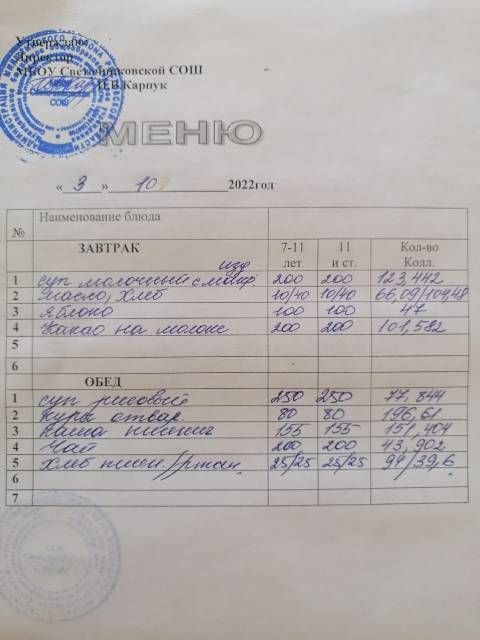 Утверждаю
Директор
МБОУ Светочниковской СОШ
Е.В.Карпук
МЕНЮ
« 3 » 10 2022год
№ Наименование блюда
ЗАВТРАК 7-11 лет 11 и ст. Кол-во Колл.
изд
1 суп молочный с мак. 200 200 123,442
2 масло, хлеб 10/40 10/40 66,09/104,48
3 яблоко 100 100 47
4 какао на молоке 200 200 101,582
5
6
ОБЕД
1 суп рисовый 250 250 77,844
2 куры отвар. 80 80 196,61
3 каша пшенич 155 155 151,404
4 чай 200 200 43,902
5 хлеб пшен./ржан 25/25 25/25 94/39,6
6
7